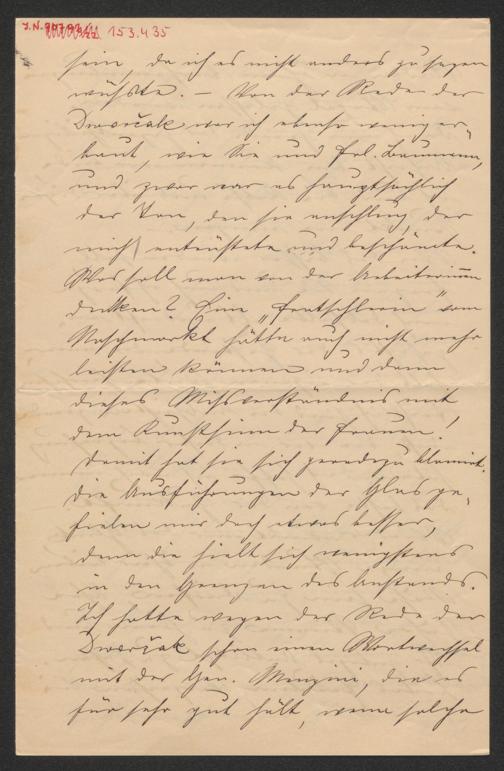 153.435
sein, da ich es nicht anders zu sagen
wüßte. – Von der Rede der
Dworžak war ich ebenso wenig er-
baut, wie Sie und Frl. Baumann,
und zwar war es hauptsächlich
der Ton, den sie anschlug, der
mich entrüstete und beschämte.
Was soll man von der Arbeiterinnen
denken? Eine „Fratschlerin" vom
Naschmarkt hätte auch nicht mehr
leisten können und dann
dieses Missverständnis mit
dem Kunstsinn der Frauen!
Damit hat sie sich geradezu blamirt.
Die Ausführungen der Glas ge-
fielen mir doch etwas besser,
denn die hielt sich wenigstens
in den Grenzen des Anstands.
Ich hatte wegen der Rede der
Dworžak schon einen Wortwechsel
mit der Gen. die es
für sehr gut hält, wenn solche